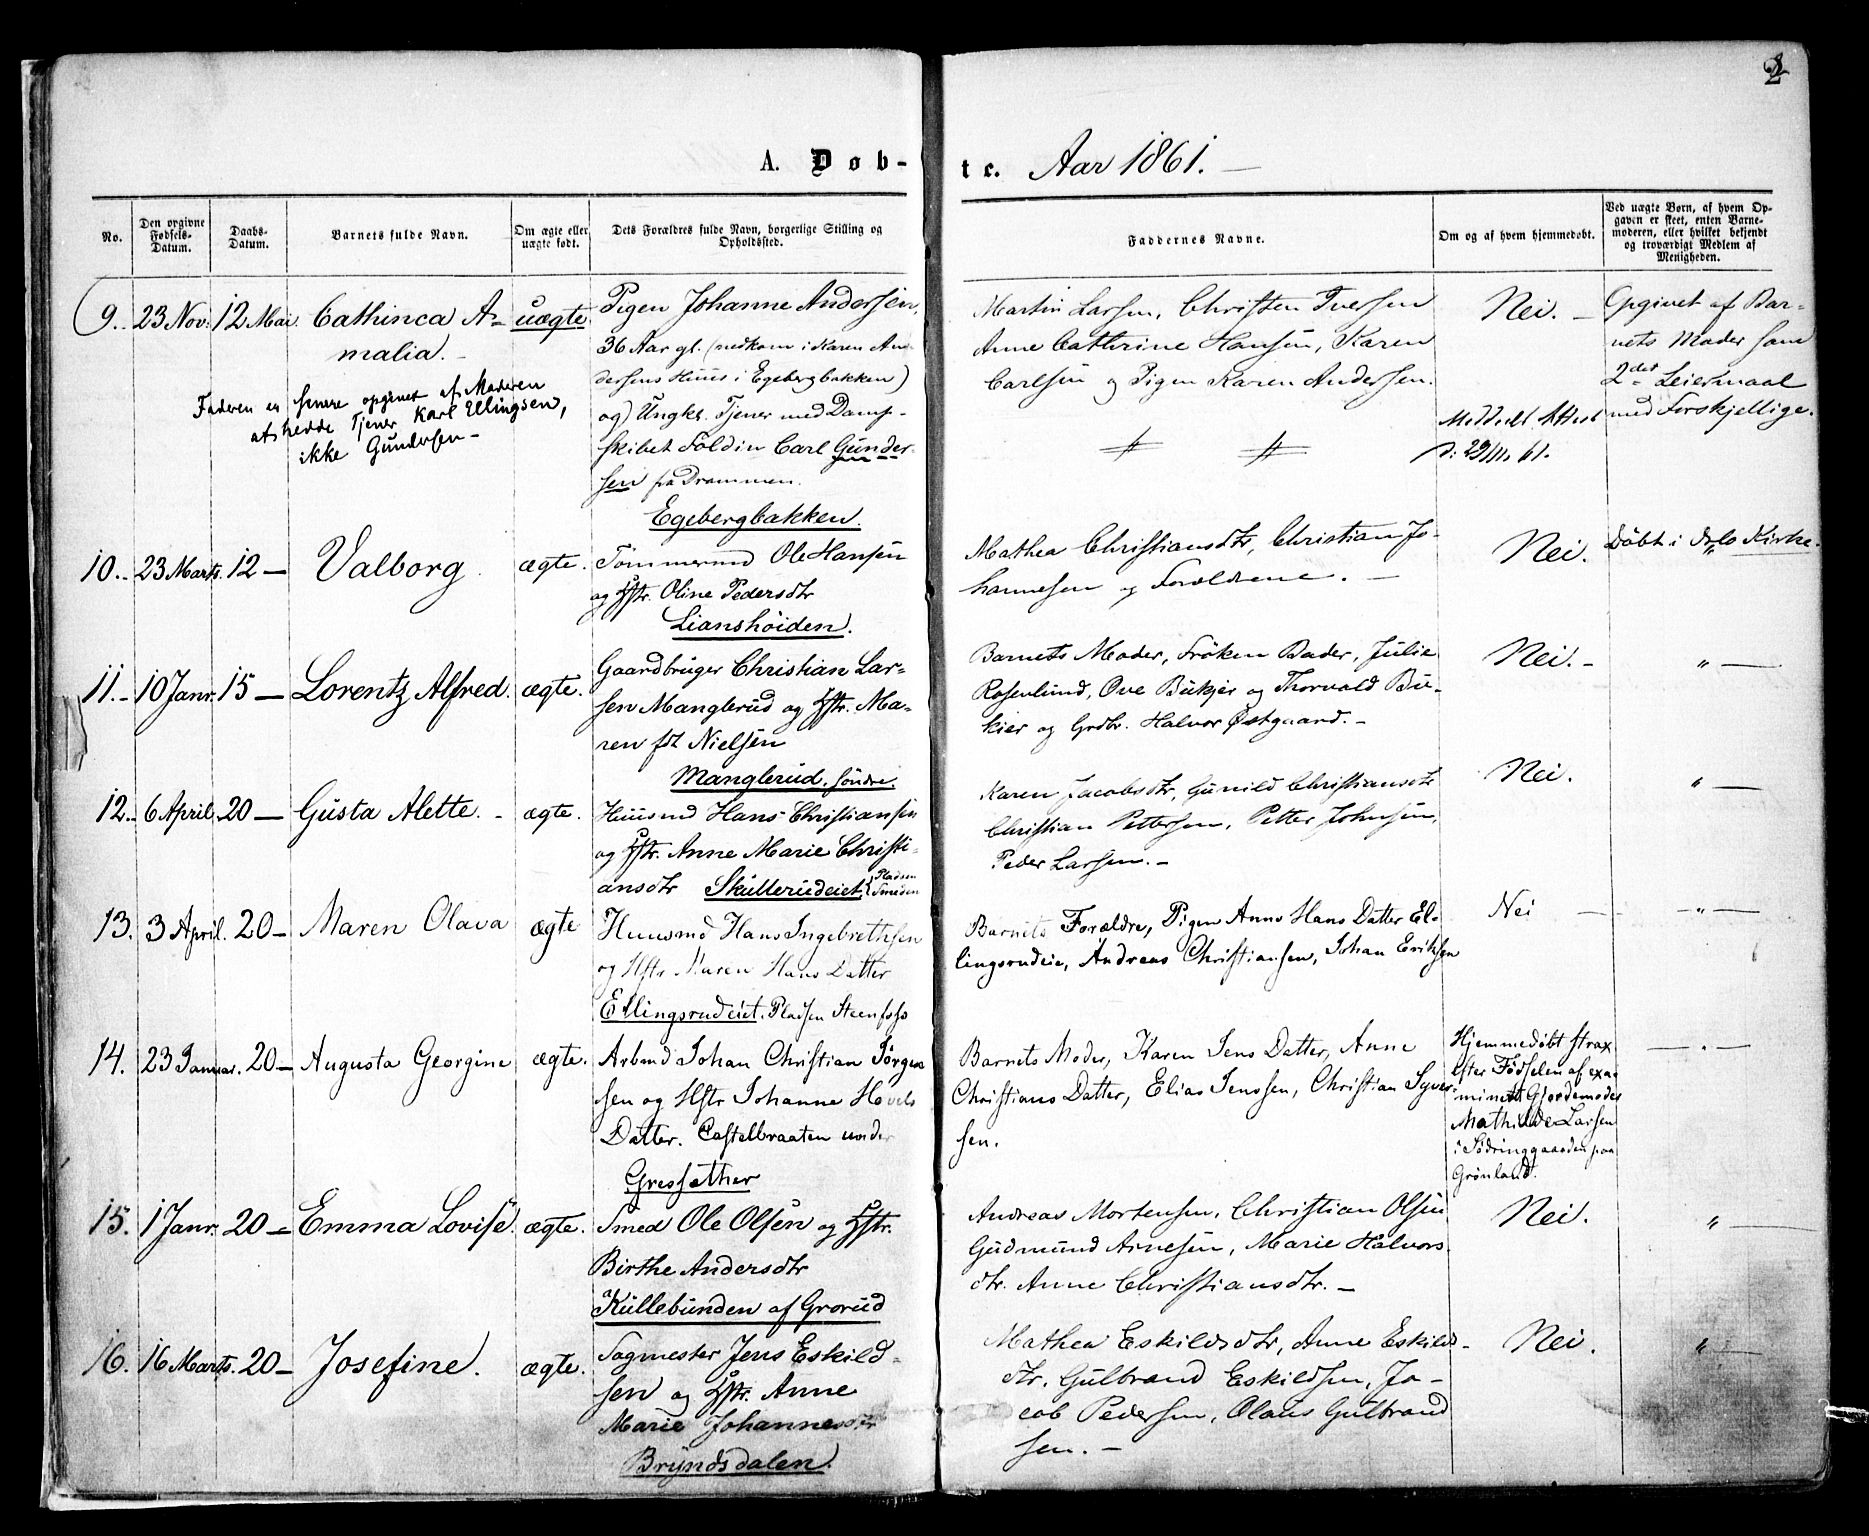 2
A. Døb-
te. Aar 1861. —
No.
Den opgivne Fødsels-Datum.
Daabs-Datum.
Barnets fulde Navn.
Om ægte eller uægte født.
Dets Forældres fulde Navn, borgerlige Stilling og Opholdssted.
Faddernes Navne.
Om og af hvem hjemmedøbt.
Ved uægte Børn, af hvem Opgaven er skeet, enten Barnemoderen, eller hvilket bekjendt og troværdigt Medlem af Menigheden.
9. 23 Nov: 12 Mai Cathinca A-
malia. -
uægte
Faderen er senere opgivet af Moderen
at hedde Tjener Karl Ellingsen,
ikke Gundersen -
Pigen Johanne Andersen,
36 Aar gl. (nedkom i Karen An
dersens Huus i Egebergbakken)
og) Ungkr. Tjener med Damp-
skibet Foldin Carl Gunder-
sen fra Drammen.
Egebergbakken.
Martin Larsen, Christen Iversen
Anne Cathrine Hansen, Karen
Carlsen og Pigen Karen Andersen.
Nei. -
Meddeelt Attest
d: 29/11. 61.
Opgivet af Bar-
nets Moder som
2det Leiermaal
med Forskjellige.
10. 23 Marts. 12 — Valborg. ægte.
Tømmermd Ole Hansen
og Hstr. Oline Pedersdtr
Lianshöiden.
Mathea Christiansdtr, Christian Jo-
hannesen og Forældrene. -
Nei.
Døbt i Oslo Kirke.
11. 10 Janr. 15 — Lorentz Alfred. ægte.
Gaardbruger Christian Lar-
sen Manglerud og Hstr. Ma-
ren fdt Nielsen
Manglerud, söndre.
Barnets Moder, Fröken Bader, Julie
Rosenlund, Ove Bukjer og Thorvald Bu-
kier og Grdbr. Halvor Østgaard. -
Nei. -
" —
12. 6 April. 20 — Gusta Alette. - ægte.
Huusmd Hans Christiansen
og Hstr. Anne Marie Christi-
ansdtr Skullerudeiet, Pladsen Smeden
Karen Jacobsdtr, Gunild Christiansdtr
Christian Pettersen, Petter Johnsen,
Peder Larsen. -
Nei.
" —
13. 3 April. 20 - Maren Olava ægte
Huusmd Hans Ingebrethsen
og Hstr Maren Hans Datter
Ellingsrudeiet. Pladsen Steenfoss
Barnets Forældre, Pigen Anne Hans Datter El-
lingsrudeie, Andreas Christiansen, Johan Eriksen
Nei —
- " —
14. 23 Januar. 20 - Augusta Georgine ægte.
Arbmd Johan Christian Jørgen
sen og Hstr Johanne Hovels
Datter. Castelbraaten under
Gressether
Barnets Moder, Karen Jens Datter, Anne
Christians Datter, Elias Jenssen, Christian Syver-
sen.
Hjemmedøbt strax
efter Fødselen af exa-
mineret Gjordemoder
Mathilde Larsen
i Södringgaarden paa
Grønland.
— " —
15. 1 Janr. 20 - Emma Lovise. ægte.
Smed Ole Olsen og Hstr.
Birthe Andersdtr
Kullebunden af Grorud
Andreas Mortensen, Christian Olsen
Gudmund Arnesen, Marie Halvors
dtr. Anne Christiansdtr. -
Nei.
" —
16. 16 Marts. 20 - Josefine. ægte.
Sagmester Jens Eskild-
sen og Hstr. Anne
Marie Johannesdtr
Bryndsdalen.
Mathea Eskildsdtr, Anne Eskilds-
dtr. Gulbrand Eskildsen, Ja-
cob Pedersen, Olaus Gulbrand
sen. -
Nei.
" —